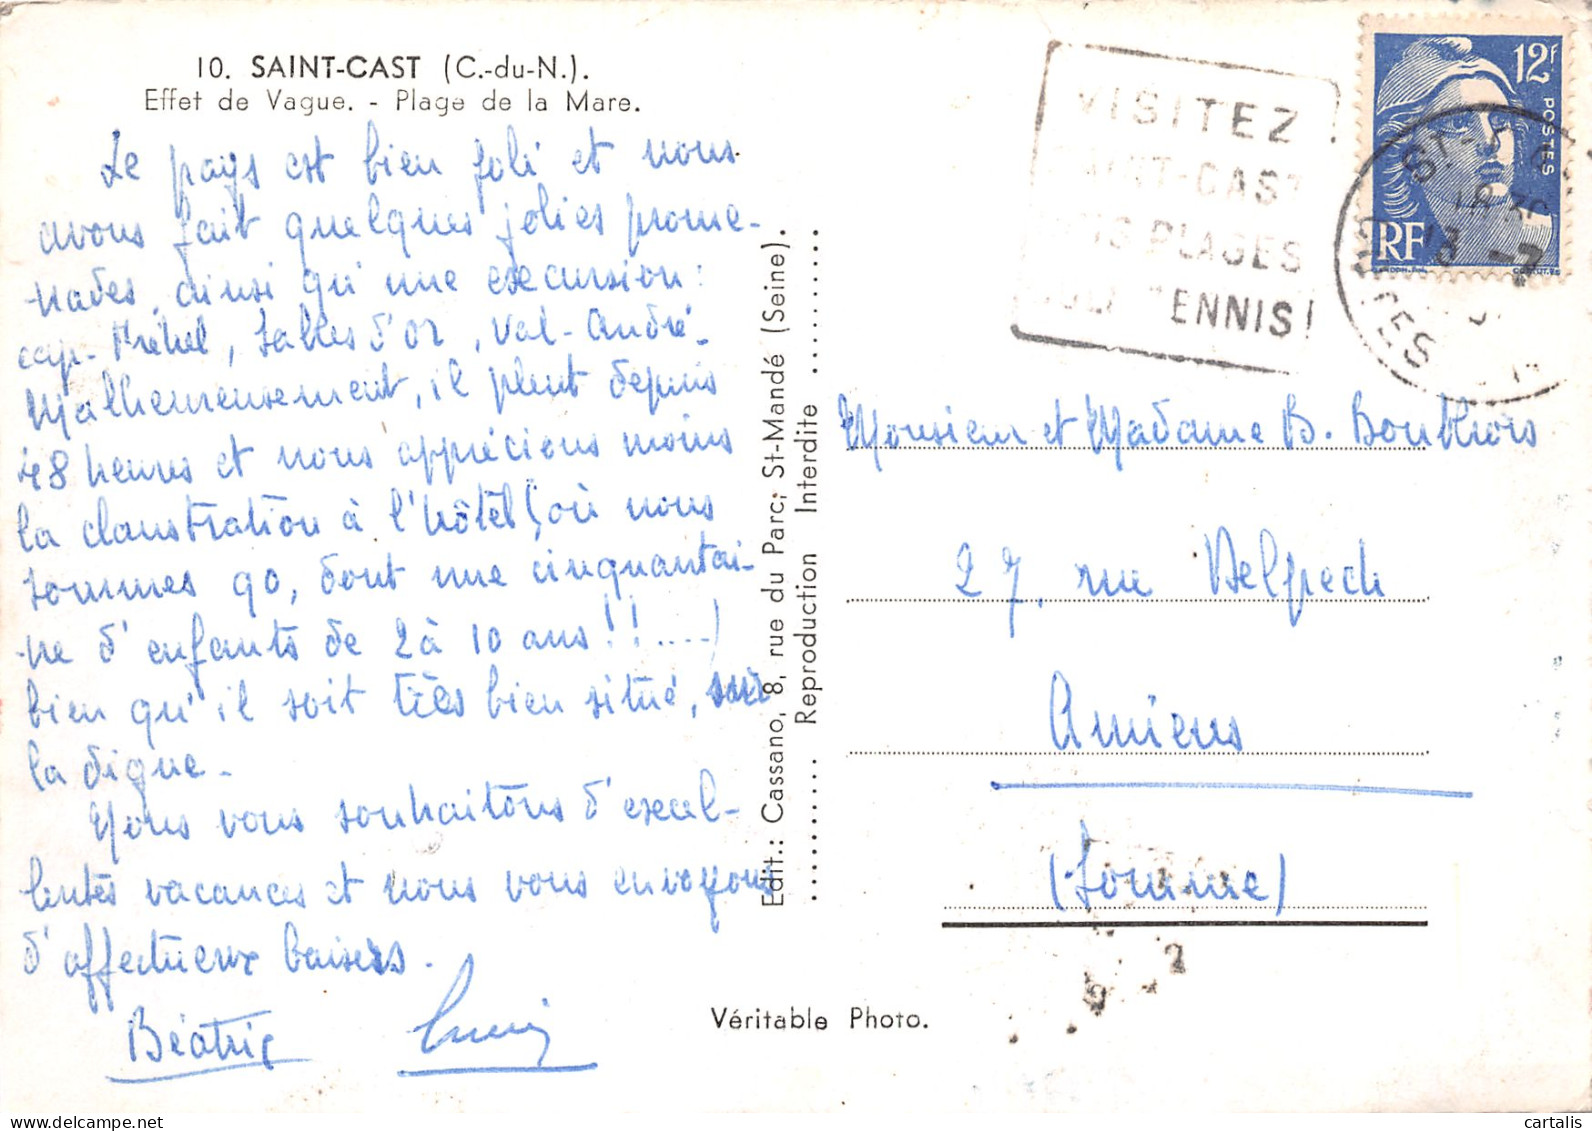 10. SAINT-CAST (C.-du-N.).
Effet de Vague. - Plage de la Mare.
Le pays est bien joli et nous
avons fait quelques jolies prome-
nades, ainsi qu'une excursion :
cap-Fréhel, Sables d'Or, Val-André.
Malheureusement, il pleut depuis
48 heures et nous apprécions moins
la claustration à l'hôtel (où nous
sommes 90, dont une cinquantai-
ne d'enfants de 2 à 10 ans!!....)
bien qu'il soit très bien situé, sur
la digue.
Nous vous souhaitons d'excel-
lentes vacances et nous vous envoyons
d'affectueux baisers.
Béatrice
Edit.: Cassano, 8, rue du Parc, St-Mandé (Seine).
Reproduction Interdite
Véritable Photo.
VISITEZ
SAINT-CAST
PLAGES
TENNIS!
12F
POSTES
RF
18 30
Monsieur et Madame B. Bouthors
27, rue Delpech
Amiens
(Somme)
cartalis